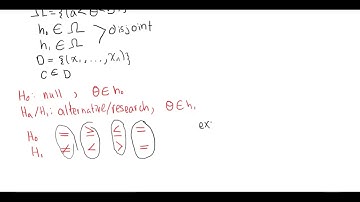 Ω = {(a < θ < b)}
h₀ ∈ Ω
h₁ ∈ Ω
disjoint
D = {(x₁, ..., xₙ)}
C ∈ D
H₀: null, θ ∈ h₀
Ha/H₁: alternative/research, θ ∈ h₁
H₀ = ≥ ≤ =
H₁ ≠ < > =
ex: